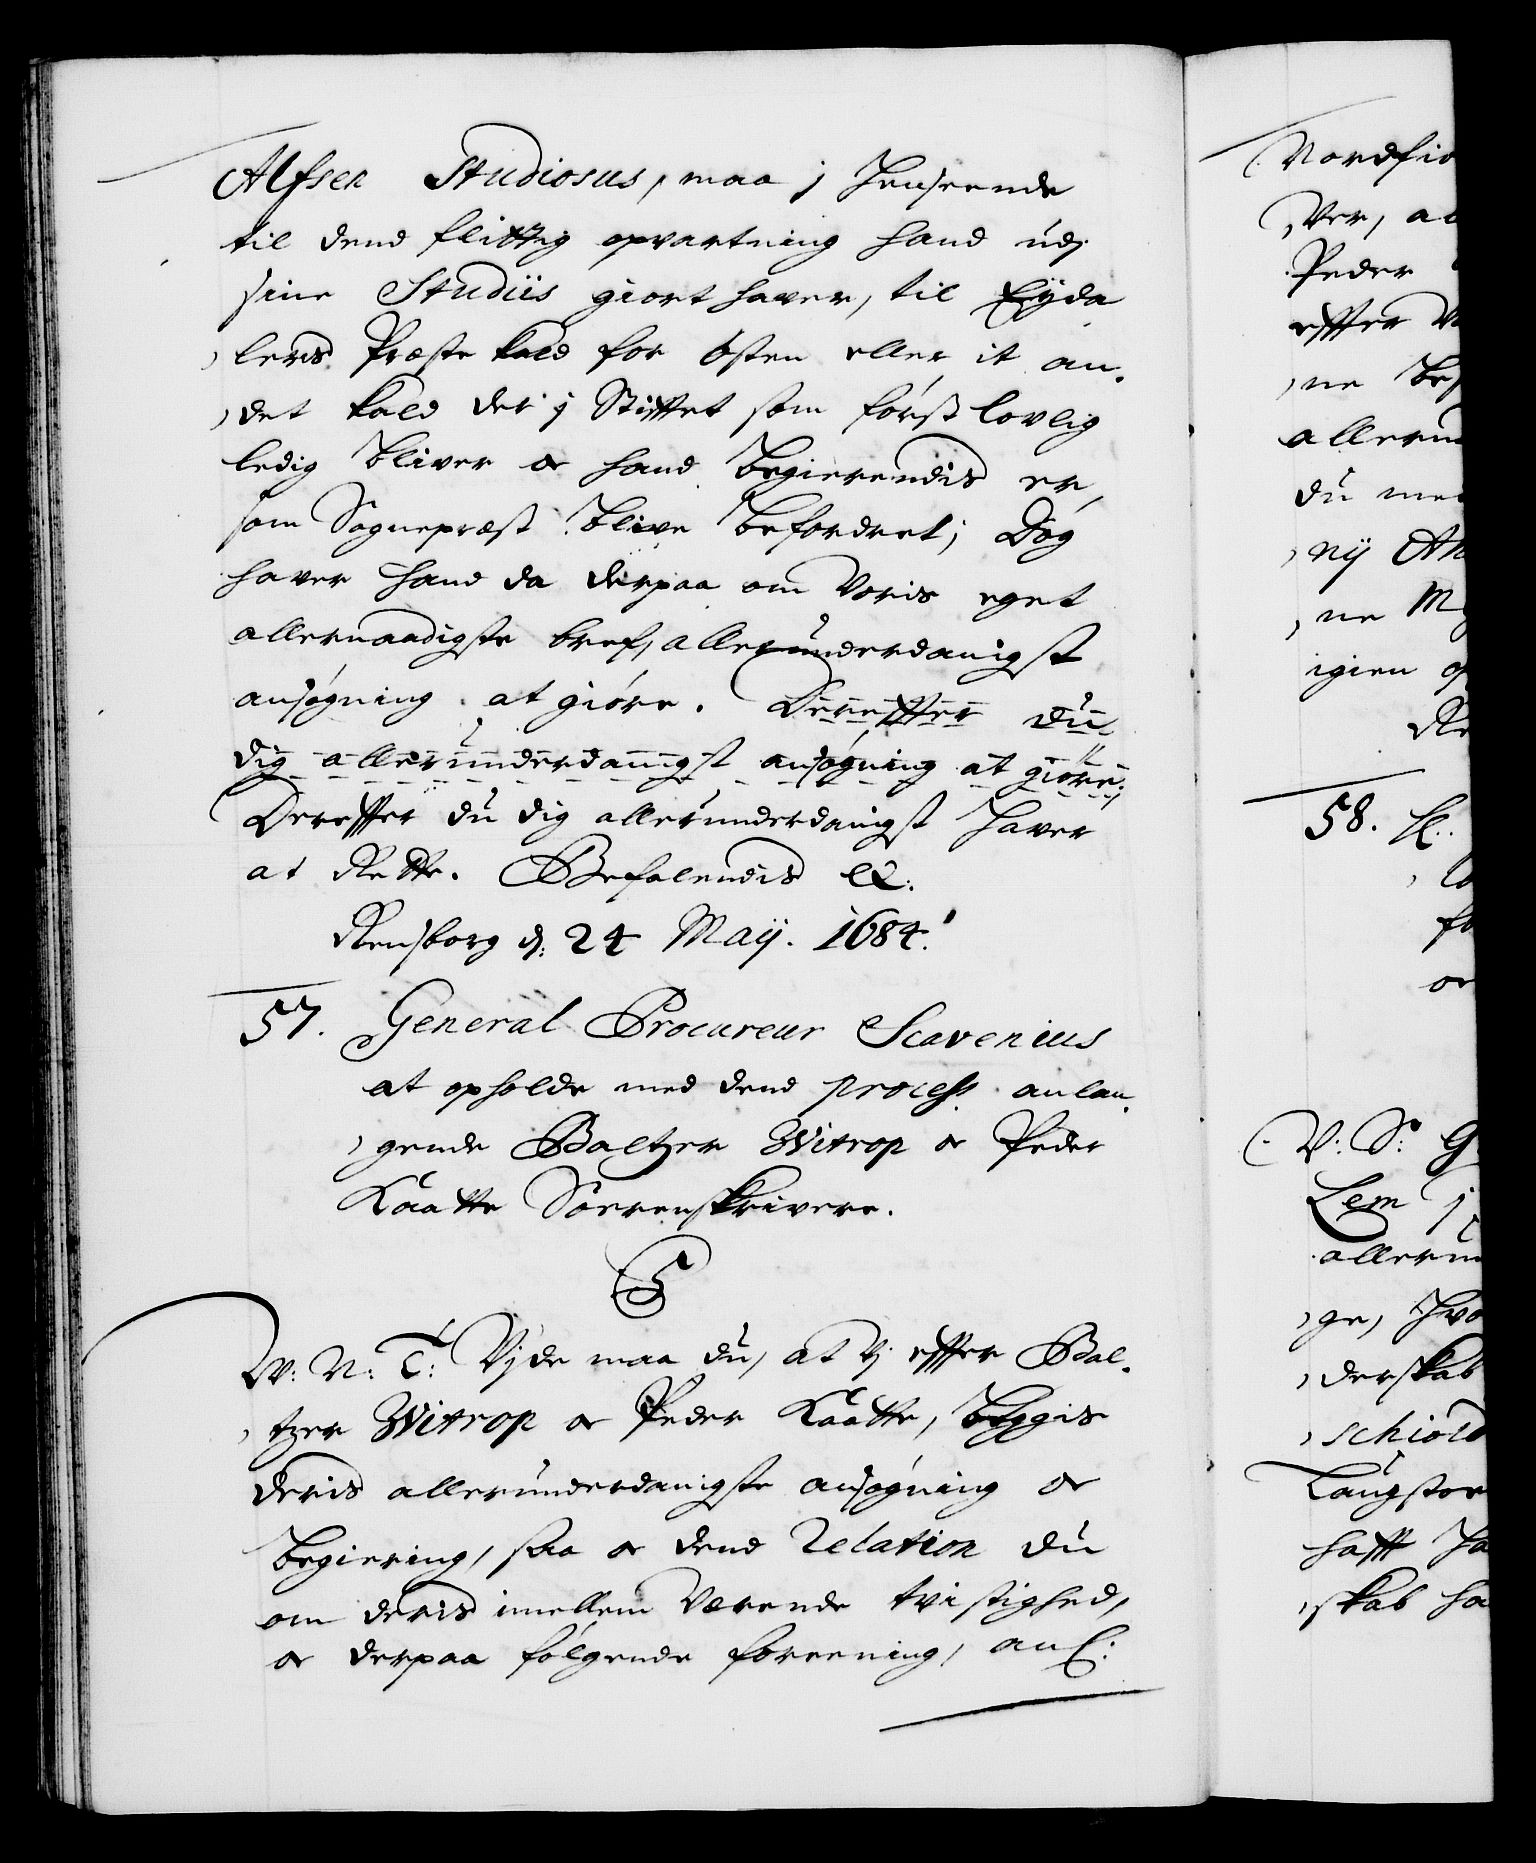 Alfsen Studiosus, maa j Henseende
til dend flittig opvartning hand udj
sine Studiis giort hafver, til Eyda
leris Præste kald for østen eller it an,
det kald der j Stifftet som først lovlig
ledig bliver or hand begierendis er,
som Sognepræst blive befordret; Dog
haver hand da derpaa om Voris eget
allernaadigste bref, allerunderdanigst
ansøgning at giøre. Dereffter du
dig allerunderdanigst ansøgning at giøre,
Dereffter du dig allerunderdanigst haver
at Rette. Befalendis etc:
Rensborg d: 24 Maij. 1684.
57. General Procureur Scavenius
at opholde med dend process anlan,
gende Baltzer Witrop or Peder
Kaatte Sorenskrivere.
C 5
W: V: T: Vjde maa du, at Vj effter Bal,
tzer Witrop or Peder Kaatte, beggis
deris allerunderdanigste ansøgning or
begiering, saa or dend Relation du
om deris imellem værende tvistighed,
or derpaa følgende foreening, anl:
Nordfio
ver, at
Peder
effter V
ne be
allerun
du me
nij An
ne M
igien o
Re
58. fl.
fo
or
V: S: G
Lem j
allerun
ge, hvo
derskab
schiold
Laugstor
hafft ha
skab ha